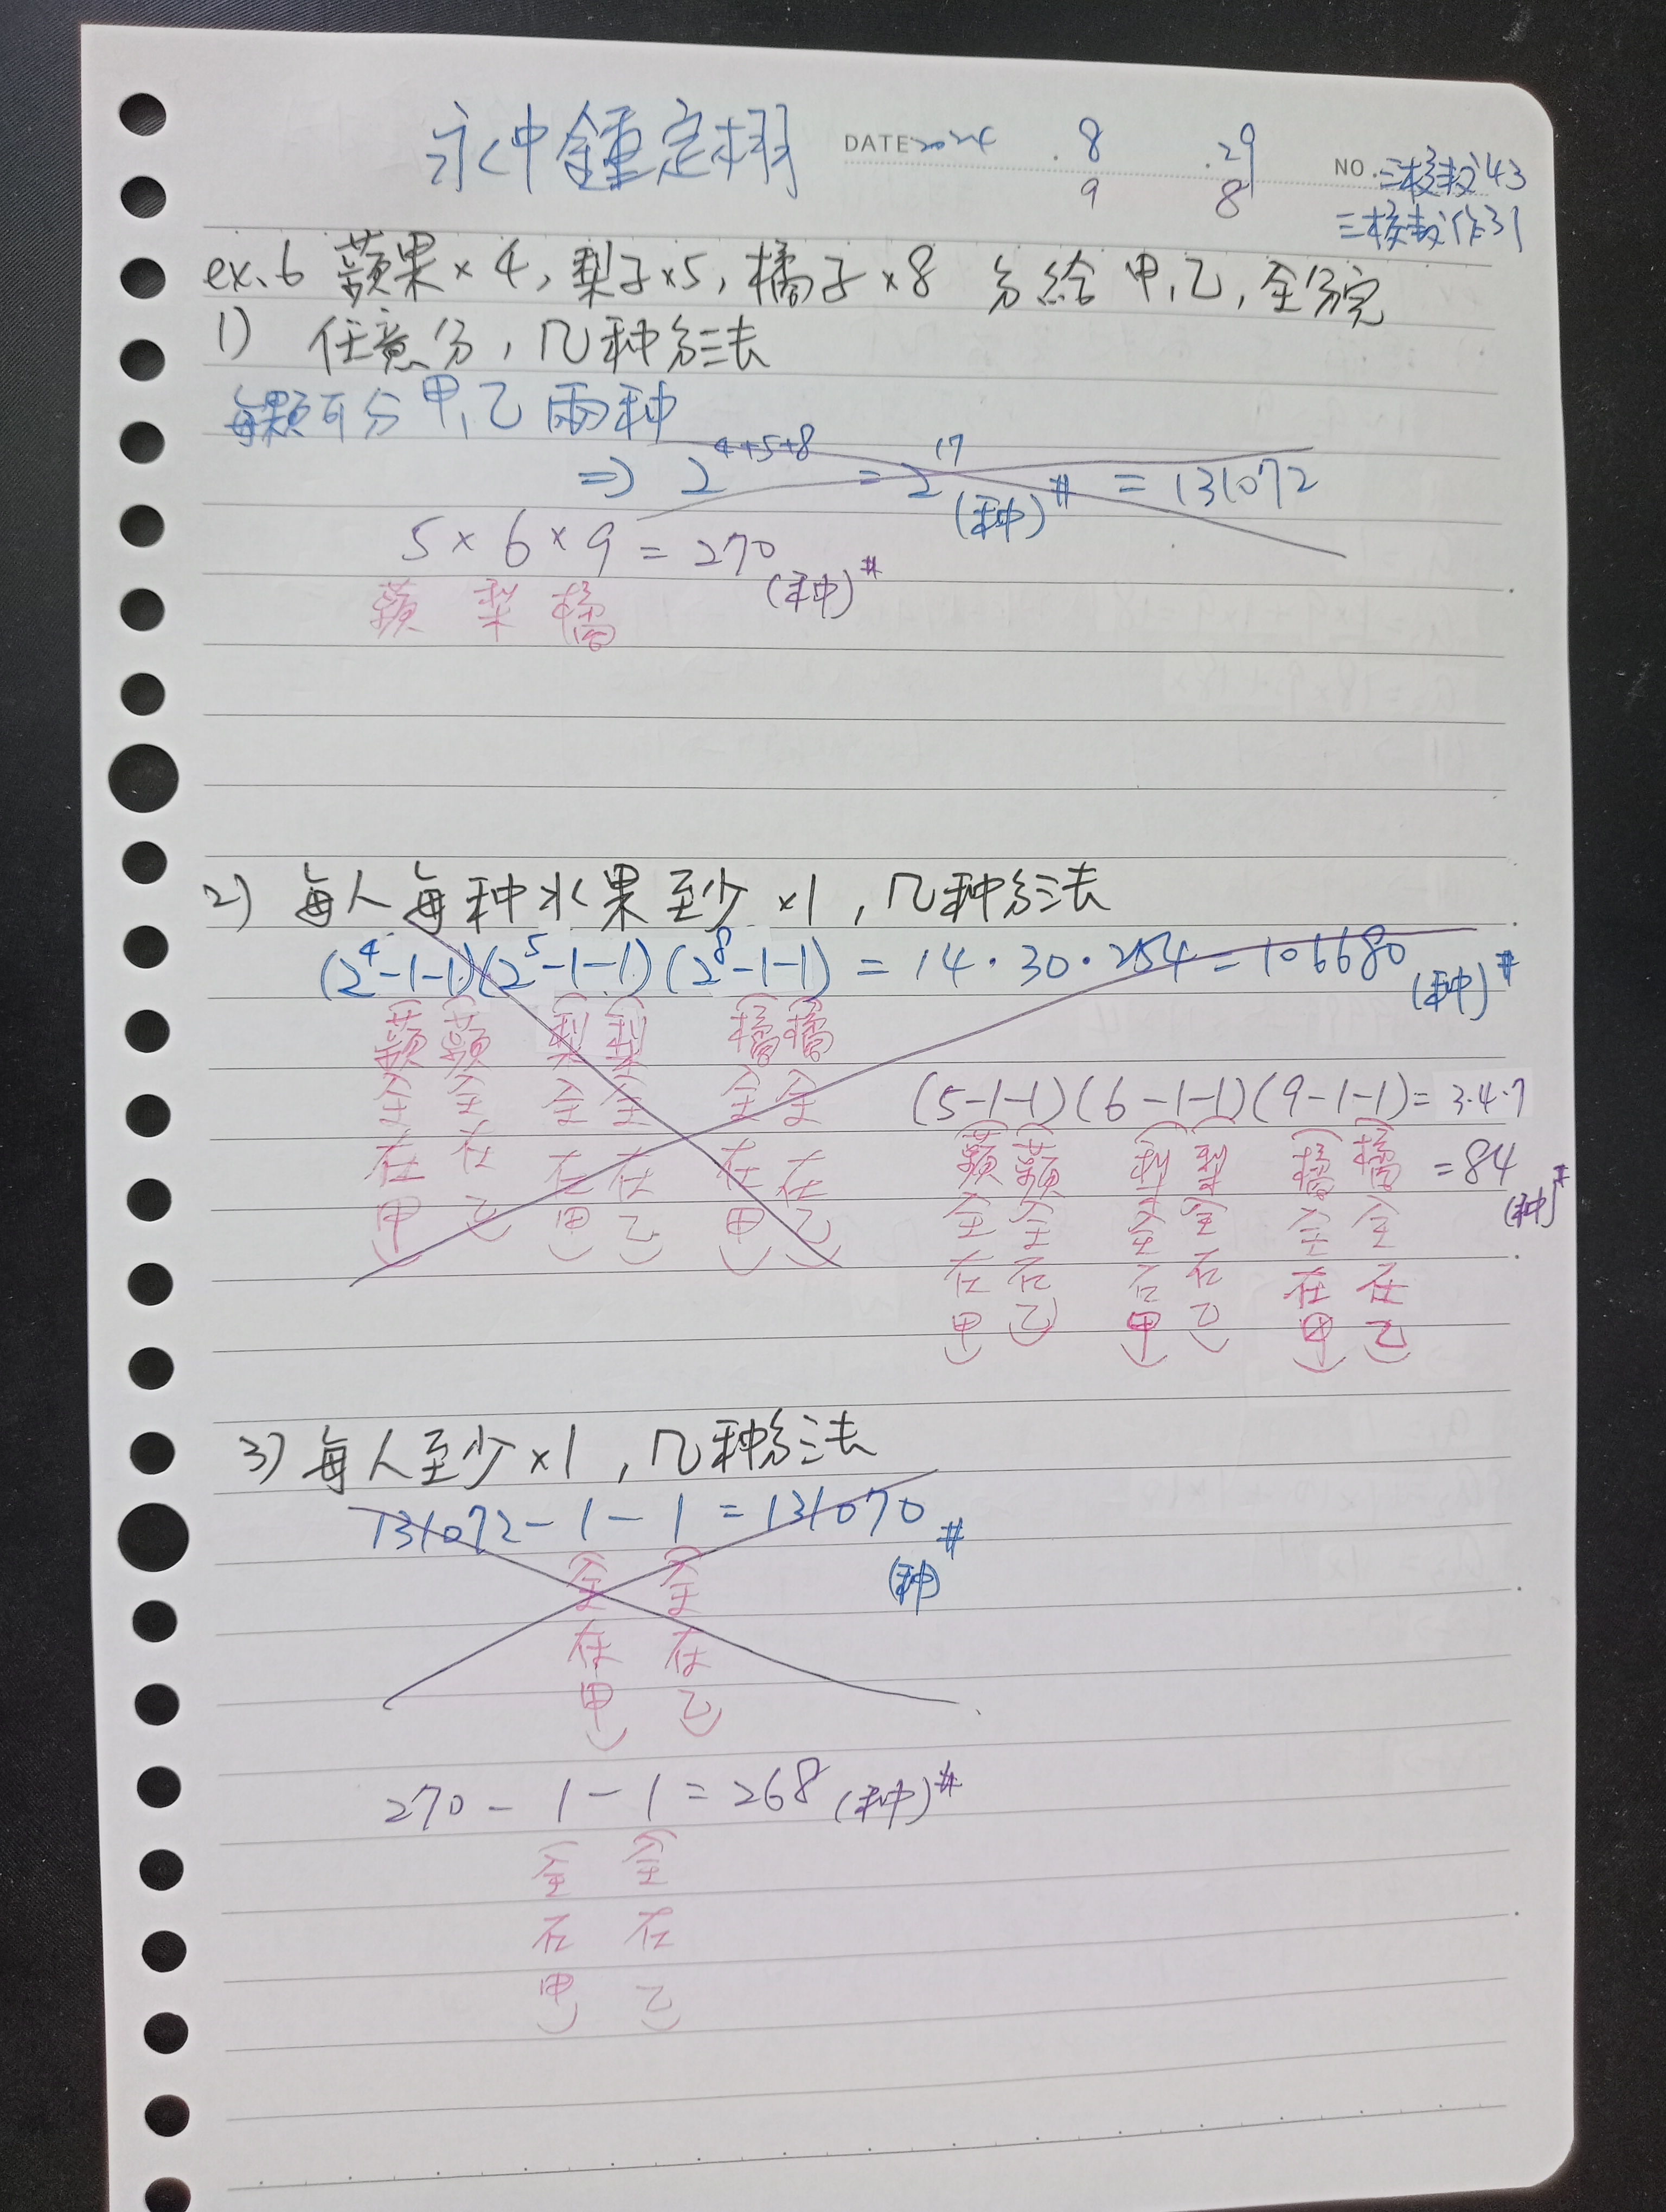 永中鍾定栩 DATE 2024 . 8 . 29 NO. 三核教43
9 8 三核教作31
ex.6 蘋果×4, 梨子×5, 橘子×8 分給甲,乙,全分完
1) 任意分, 几种分法
每顆可分甲,乙兩种
⇒ 2^{4+5+8} = 2^{17} (种)# = 131072
5×6×9 = 270 (种)#
蘋 梨 橘
2) 每人每种水果至少×1, 几种分法
(2^4-1-1)(2^5-1-1)(2^8-1-1) = 14·30·254 = 106680 (种)#
(蘋全在甲) (蘋全在乙) (梨全在甲) (梨全在乙) (橘全在甲) (橘全在乙)
(5-1-1)(6-1-1)(9-1-1) = 3·4·7
= 84 (种)#
(蘋全在甲) (蘋全在乙) (梨全在甲) (梨全在乙) (橘全在甲) (橘全在乙)
3) 每人至少×1, 几种分法
131072-1-1 = 131070 # (种)
(全在甲) (全在乙)
270-1-1 = 268 (种)#
(全在甲) (全在乙)